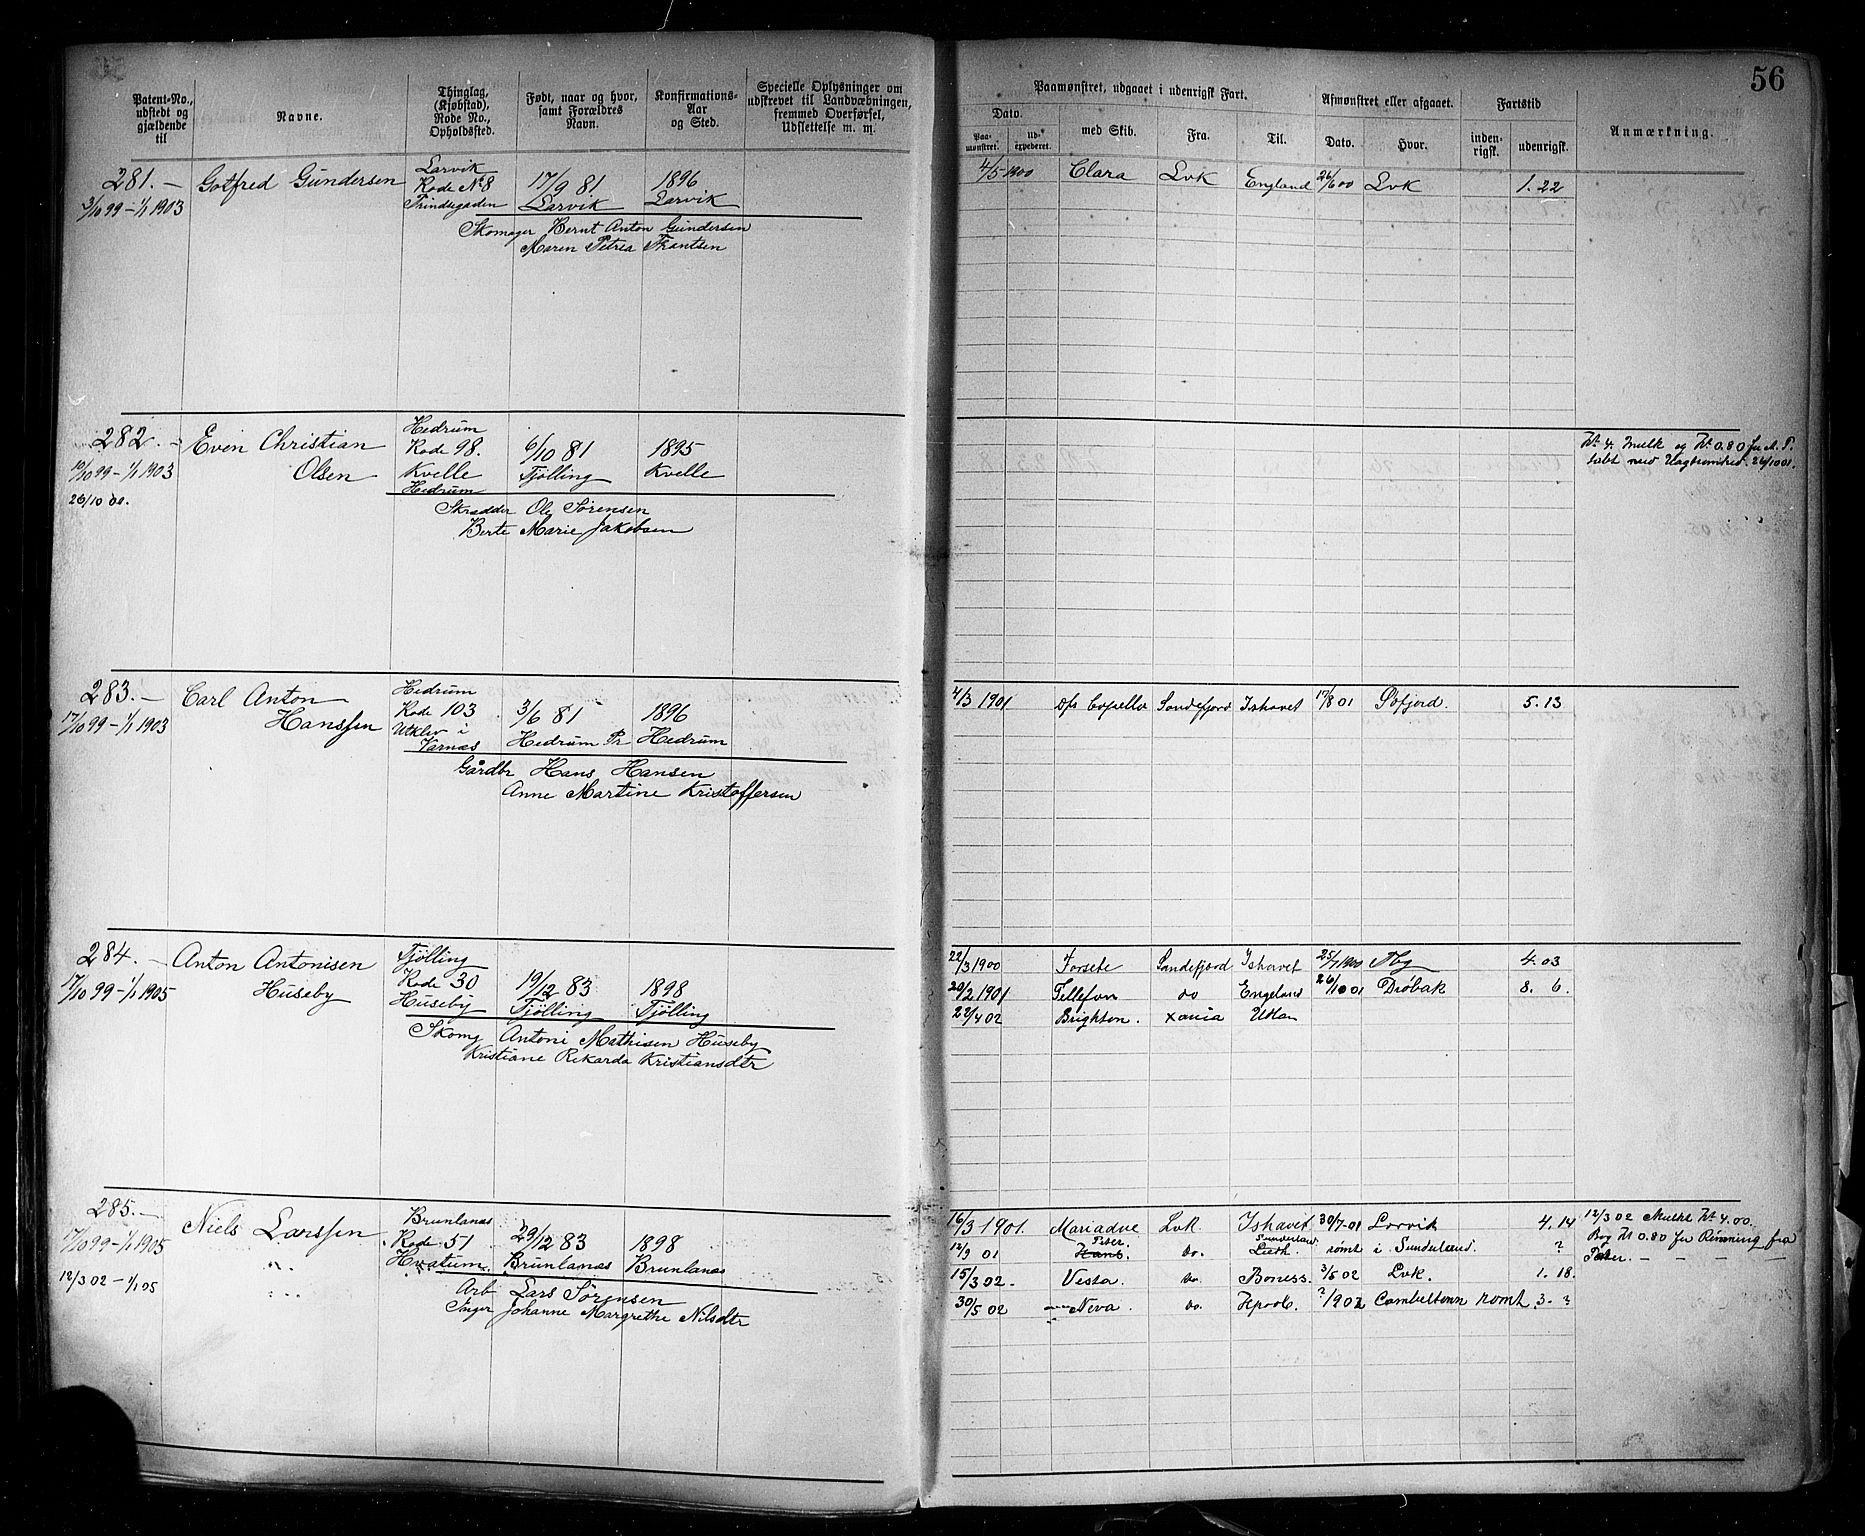 56
Patent-No., udstedt og gjældende til
Navne.
Thinglag, (Kjøbstad), Rode No., Opholdssted.
Født, naar og hvor, samt Forældres Navn.
Konfirmations-Aar og Sted.
Specielle Oplysninger om udskrevet til Landværnspligten, fremmed Overførsel, Udslettelse m. m.
Paamønstret, udgaaet i udenrigsk Fart.
Dato.
Paamønstret.
Udexpederet.
med Skib.
Fra.
Til.
Afmønstret eller afgaaet.
Dato.
Hvor.
Fartstid
indenrigsk.
udenrigsk.
Anmærkning.
281.— Gotfred Gundersen
3/10 99 – 1/1 1903
Larvik
Rode No 8
Trindegaden
17/9 81
Larvik
1896
Larvik
Skomager Bernt Anton Gundersen
Maren Petrea Frantsen
4/5 1900 Clara Lvk England 26/6 00 Lvk 1. 22
282.— Even Christian Olsen
10/10 99 – 1/1 1903
26/10 00.
Hedrum
Rode 98.
Kvelle
Hedrum
6/10 81
Tjølling
1895
Kvelle
Skrædder Ole Sørensen
Berte Marie Jakobsen
Kr 4. Mulk og Kr 0.80 for
26/10 01.
283.— Carl Anton Hanssen
17/10 99 – 1/1 1903
Hedrum
Rode 103
Utklev i
Varnæs
3/6 81
Hedrum Pr
1896
Hedrum
Gårdbr Hans Hansen
Anne Martine Kristoffersen
4/3 1901 D/s Sandefjord Ishavet 17/8 01 5. 13
284.— Anton Antonisen Huseby
17/10 99 – 1/1 1905
Tjølling
Rode 30
Huseby
19/12 83
Tjølling
1898
Tjølling
Skomg Antoni Mathisen Huseby
Kristiane Rikarda Kristiansdtr
22/3 1900 Forsete Sandefjord Ishavet 25/7 1900 Tbg 4. 03
20/2 1901 Tellefon do England 26/10 01 Drøbak 8. 6.
22/4 02 Brighton. xania Utlan
285.— Niels Larssen
17/10 99 – 1/1 1905
12/3 02 – 1/1 05
Brunlanæs
Rode 51
Hvatum
29/12 83
Brunlanæs
1898
Brunlanæs
Arb Lars Sørensen
Inger Johanne Margrethe Nilsdtr
16/3 1901. Mariadue Lvk. Ishavet 30/7-01 Larvik 4. 14
12/9 01 Hans Peter do. Leith Sunderland rømt i Sunderland. ?
15/3 02 - Vesta. do. Boness. 3/5 02 Lvk. 1. 18.
30/5 02 Neva. do. ?/9 02 Cambeltown rømt 3- ?
12/3 02 Mulkt Kr 4.00.
Bog Kr 0.80 for Rømning fra
Peter. —